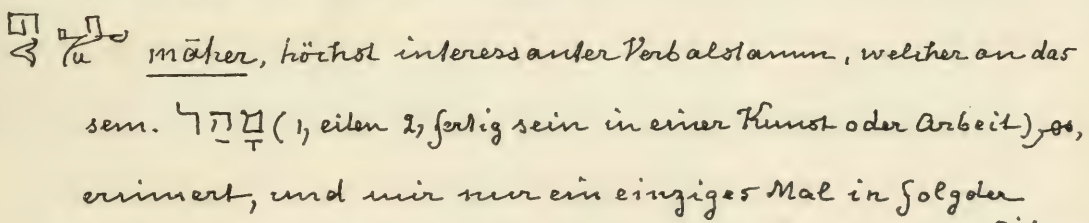 māher, höchst interessanter Verbalstamm, welcher an das
sem. מָהַר (1, eilen 2, fertig sein in einer Kunst oder Arbeit),
erinnert, und mir nur ein einziges Mal in folgder